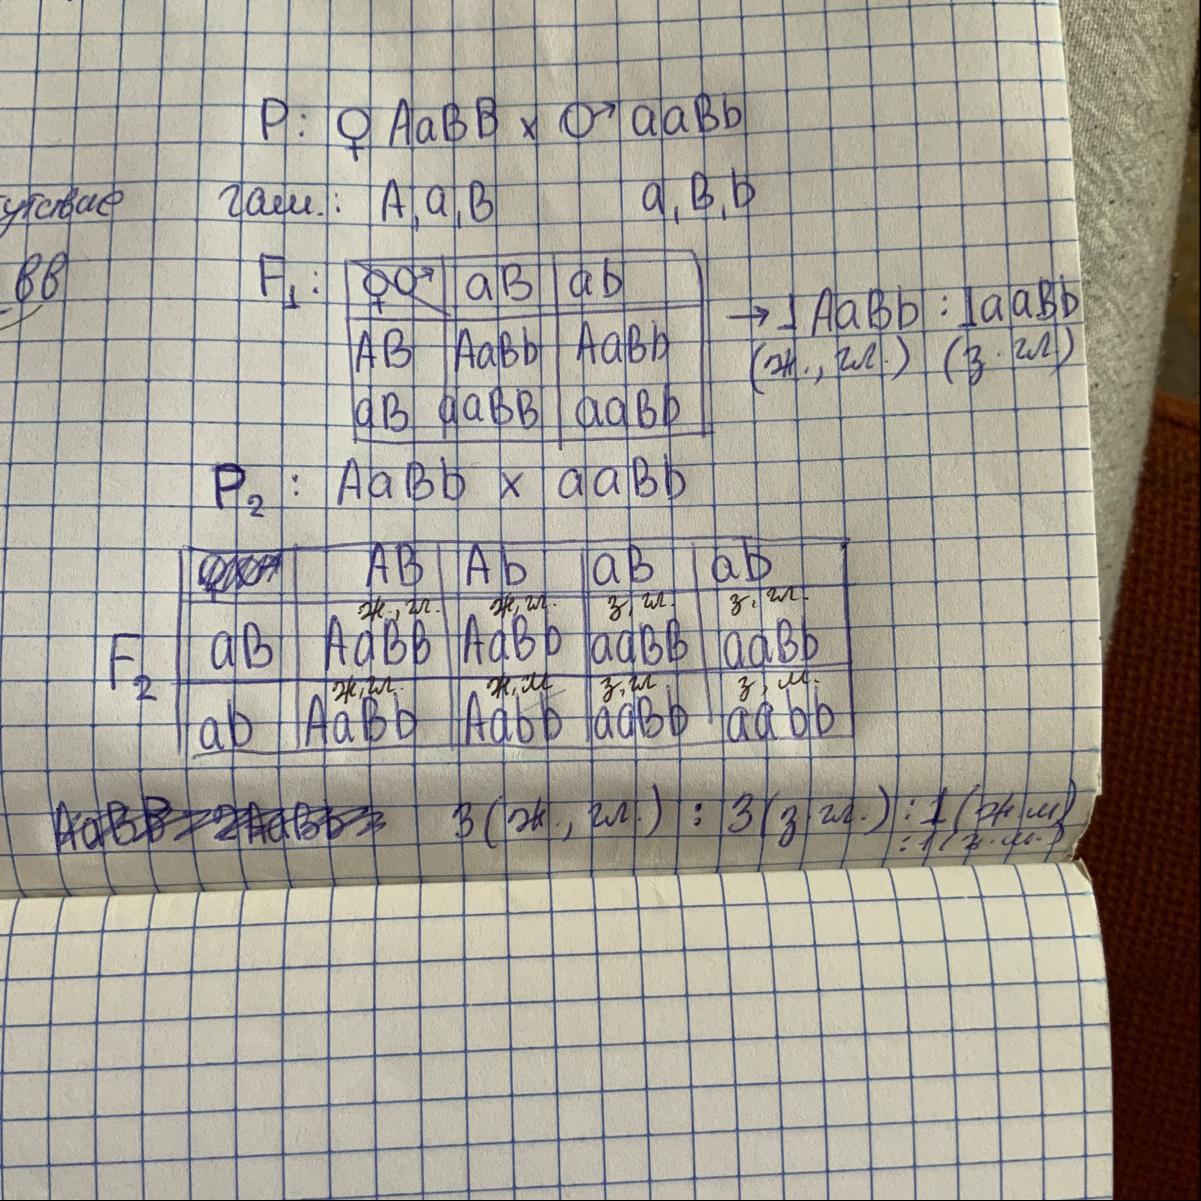 P: ♀ AaBB x ♂ aaBb
утствие гам.: A,a,B a,B,b
BB
F1: ♀♂ aB ab
AB AaBb AaBb
aB aaBB aaBb
→ 1 AaBb : 1aaBb
(ж., гл.) (з. гл)
P2 : AaBb x aaBb
AB Ab aB ab
ж., гл. ж, гл. з, гл. з, гл.
F2 aB AaBB AaBb aaBB aaBb
ж, гл. ж, м з, гл з, м.
ab AaBb Aabb aaBb aabb
3 (ж., гл.) : 3 (з гл.) : 1 (ж м)
: 1 (з. м.)